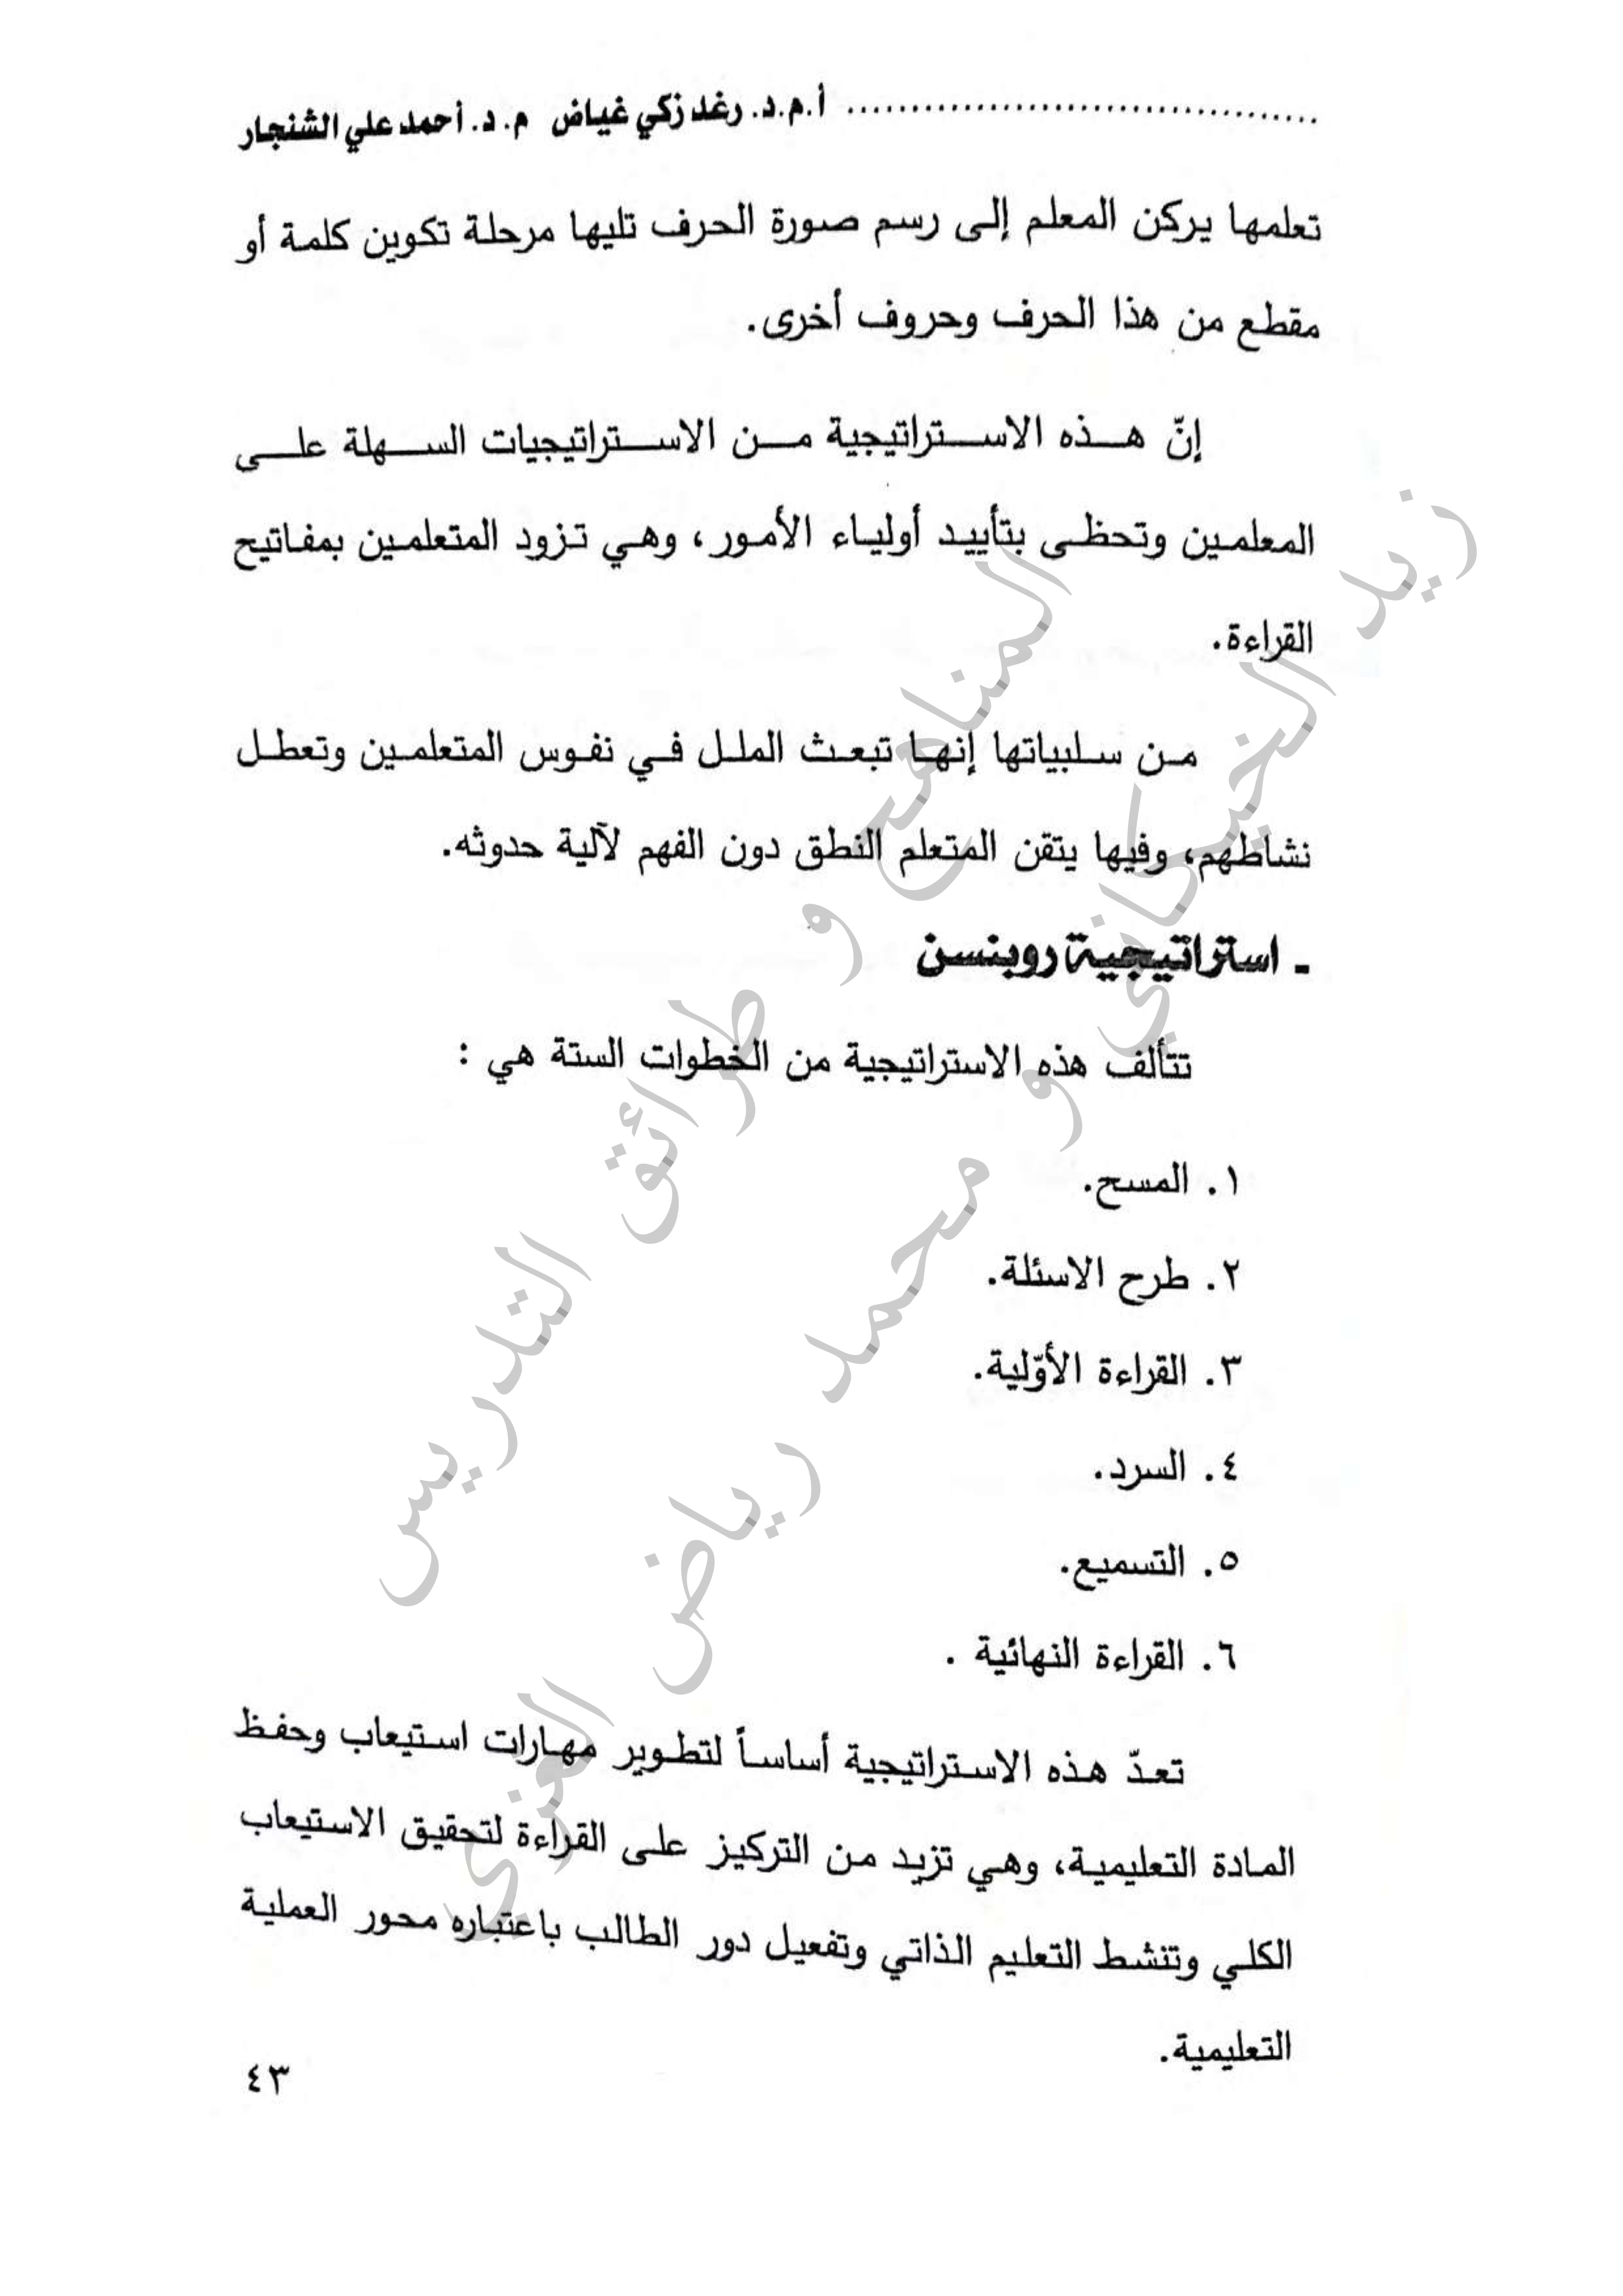 ................................... أ.م.د. رغد زكي غياض م. د. أحمد علي الشنجار
تعلمها يركن المعلم إلى رسم صورة الحرف تليها مرحلة تكوين كلمة أو
مقطع من هذا الحرف وحروف أخرى.
إنّ هذه الاستراتيجية من الاستراتيجيات السهلة على
المعلمين وتحظى بتأييد أولياء الأمور، وهي تزود المتعلمين بمفاتيح
القراءة.
من سلبياتها إنها تبعث الملل في نفوس المتعلمين وتعطل
نشاطهم، وفيها يتقن المتعلم النطق دون الفهم لآلية حدوثه.
- استراتيجية روبنسن
تتألف هذه الاستراتيجية من الخطوات الستة هي :
١. المسح.
٢. طرح الاسئلة.
٣. القراءة الأوّلية.
٤. السرد.
٥. التسميع.
٦. القراءة النهائية .
تعدّ هذه الاستراتيجية أساساً لتطوير مهارات استيعاب وحفظ
المادة التعليمية، وهي تزيد من التركيز على القراءة لتحقيق الاستيعاب
الكلي وتنشط التعليم الذاتي وتفعيل دور الطالب باعتباره محور العملية
التعليمية.
٤٣
المناهج و طرائق التدريس
زيد الخيكاني و محمد رياض العزي